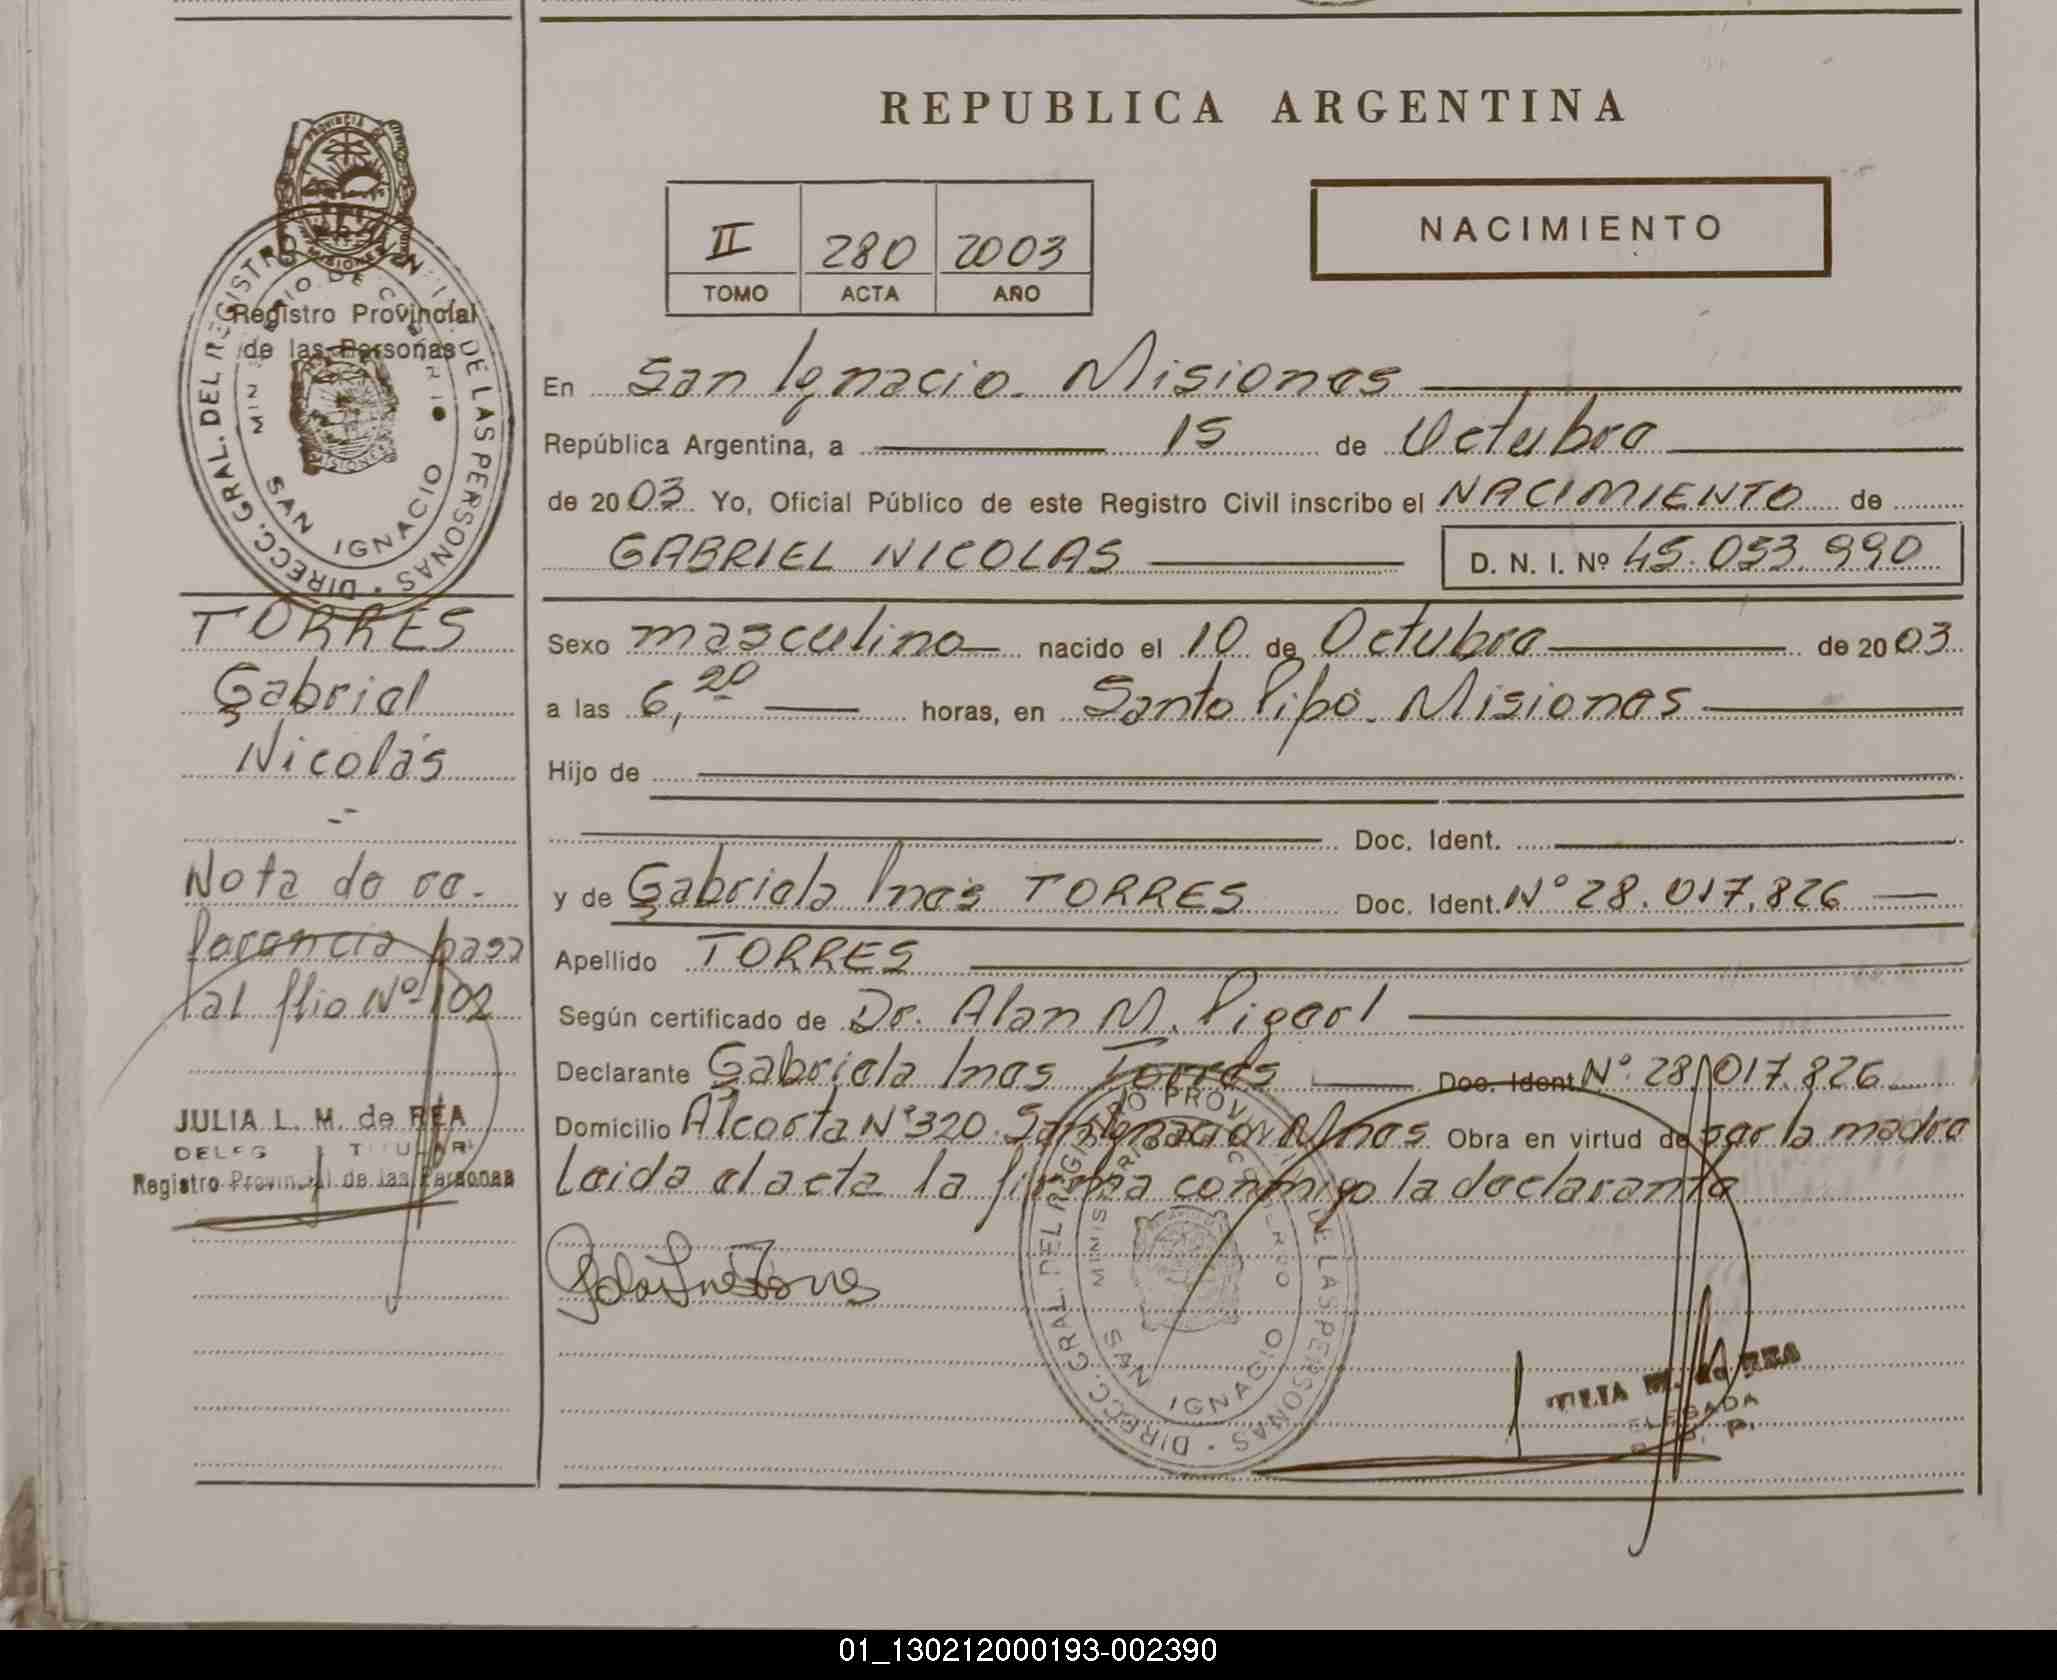 REPUBLICA ARGENTINA
II 280 2003
TOMO ACTA AÑO
NACIMIENTO
Registro Provincial
de las Personas
DIRECC. GRAL. DEL REGISTRO DE LAS PERSONAS
SAN IGNACIO
En San Ignacio. Misiones
República Argentina, a 15 de Octubre
de 2003 Yo, Oficial Público de este Registro Civil inscribo el NACIMIENTO de
GABRIEL NICOLAS D. N. I. Nº 45.053.990
Sexo masculino nacido el 10 de Octubre de 2003
a las 6,20 horas, en Santo Pipó. Misiones
Hijo de
Doc. Ident.
y de Gabriela Inés TORRES Doc. Ident. Nº 28.017.826
Apellido TORRES
Según certificado de Dr. Alan M. Pigerl
Declarante Gabriela Ines Torres Doc. Ident Nº 28.017.826
Domicilio Alcorta Nº 320. San Ignacio Mnes. Obra en virtud de ser la madre
Leida el acta la firma conmigo la declarante
TORRES
Gabriel
Nicolás
Nota de re-
ferencia pasa
al flio Nº 102
JULIA L. M. de REA
DELEG TITULAR
Registro Provincial de las Personas
DIRECC. GRAL. DEL REGISTRO PROVINCIAL DE LAS PERSONAS
SAN IGNACIO
JULIA M. de REA
DELEGADA
R. P.
01_130212000193-002390